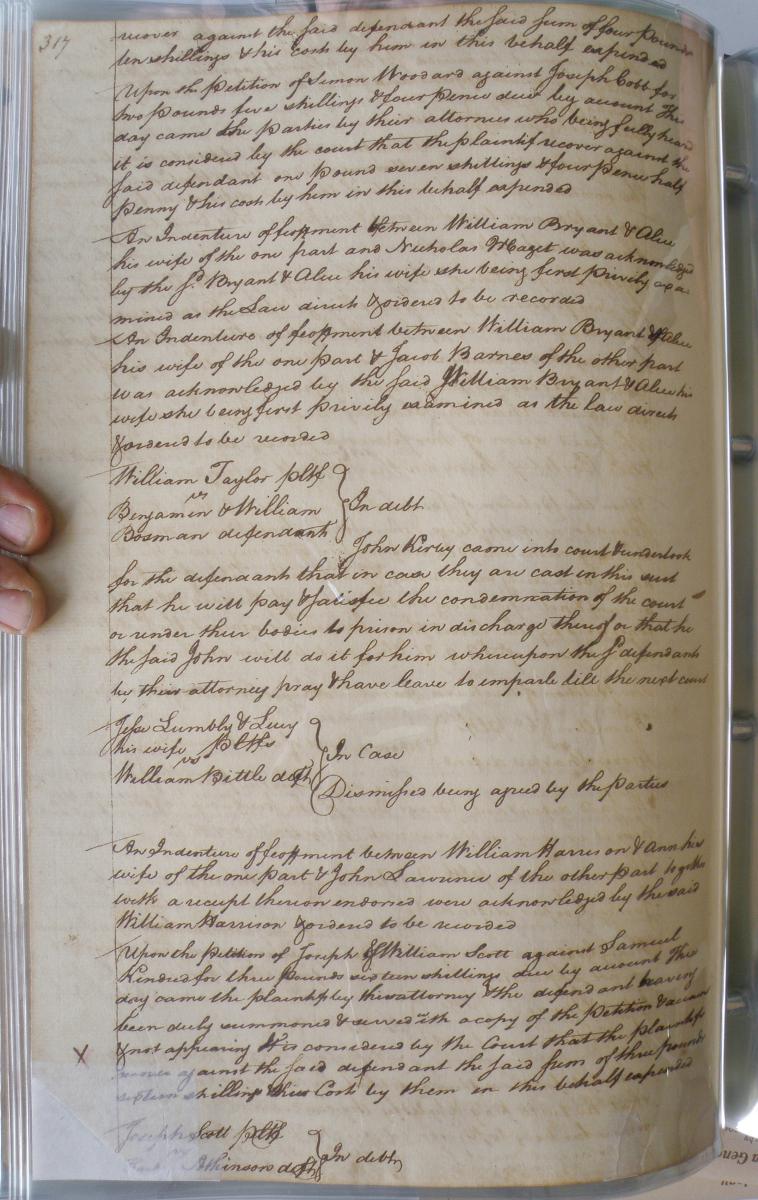 317
recover against the said defendant the said sum of four pounds
ten shillings & his costs by him in this behalf expended
Upon the Petition of Simon Woodard against Joseph Cobb for
two pounds five shillings & four pence due by account This
day came the parties by their attornies who being fully heard
it is considered by the court that the plaintif recover against the
said defendant one pound seven shillings & four pence half
penny & his costs by him in this behalf expended
An Indenture of feoffment between William Bryant & Alice
his wife of the one part and Nicholas was acknowledged
by the sd. Bryant & Alice his wife she being first privily exa
mined as the Law directs & ordered to be recorded
An Indenture of feoffment between William Bryant & Alice
his wife of the one part & Jacob Barnes of the other part
was acknowledged by the said William Bryant & Alice his
wife she being first privily examined as the law directs
& ordered to be recorded
William Taylor pltf
vs
Benjamin & William
Bosman defendants
In debt
John Kirby came into court & undertook
for the defendants that in case they are cast in this suit
that he will pay & satisfie the condemnation of the court
or under their bodies to prison in discharge thereof or that he
the said John will do it for him whereupon the sd. defendants
by their attorney pray & have leave to imparle till the next court
Jesse Lumbly & Lucy
his wife pltfs
vs
William Bittle deft
In Case
Dismissed being agreed by the parties
An Indenture of feoffment between William Harrison & Ann his
wife of the one part & John Lawrence of the other part together
with a receipt thereon endorsed were acknowledged by the said
William Harrison & ordered to be recorded
Upon the Petition of Joseph & William Scott against Samuel
Kindred for three pounds sixteen shillings due by account This
day came the plaintifs by their attorney & the defendant having
been duly summoned & served with a copy of the Petition & account
X
& not appearing It is considered by the Court that the plaintifs
recover against the said defendant the said sum of three pounds
sixteen shillings & their Costs by them in this behalf expended
Joseph Scott pltf
vs
Atkinson deft
In debt